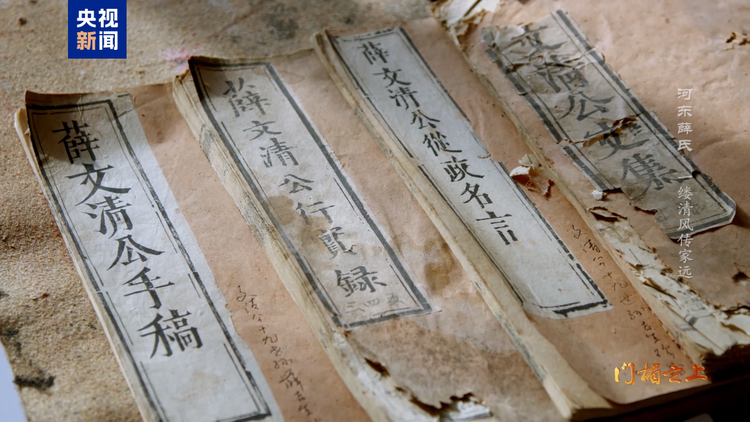 央视
新闻
薛文清公手稿
薛文清公行實録
三四五
薛文清公從政名言
文清公文集
河东薛氏
一缕清风传家远
门楣之上